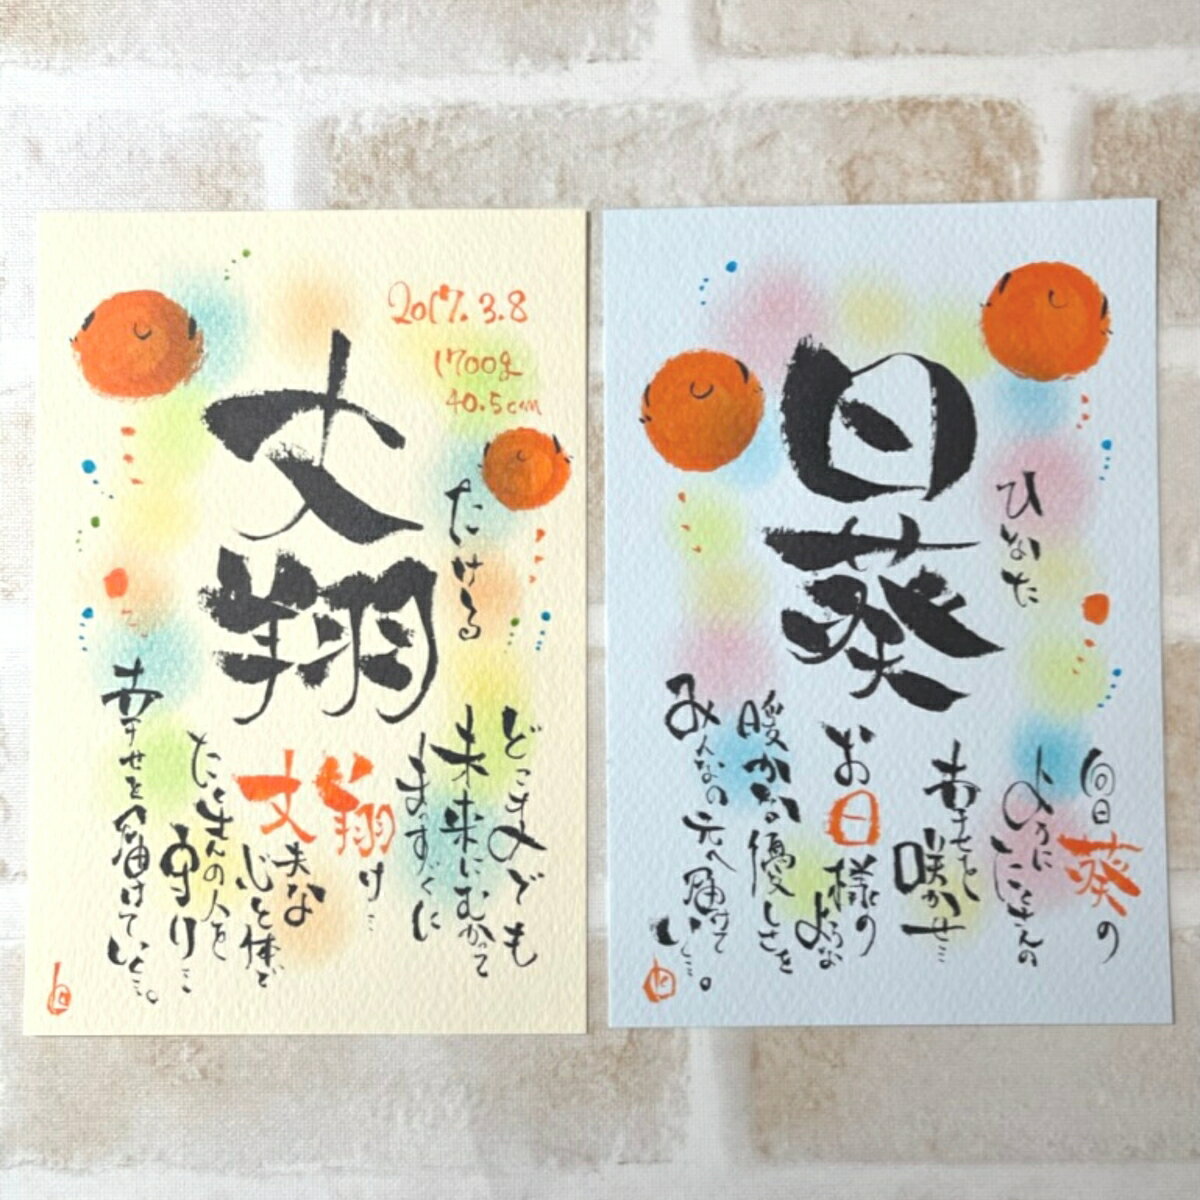 2017.3.8
1700g
40.5cm
丈翔
たける
どこまでも
未来にむかって
まっすぐに
翔け…
丈夫な
心と体で
たくさんの人を
守り…
幸せを届けていく…。
日葵
ひなた
向日葵の
ように
たくさんの
幸せを
咲かせ…
お日様の
ような
暖かな優しさを
みんなの元へ届けて
いく…。